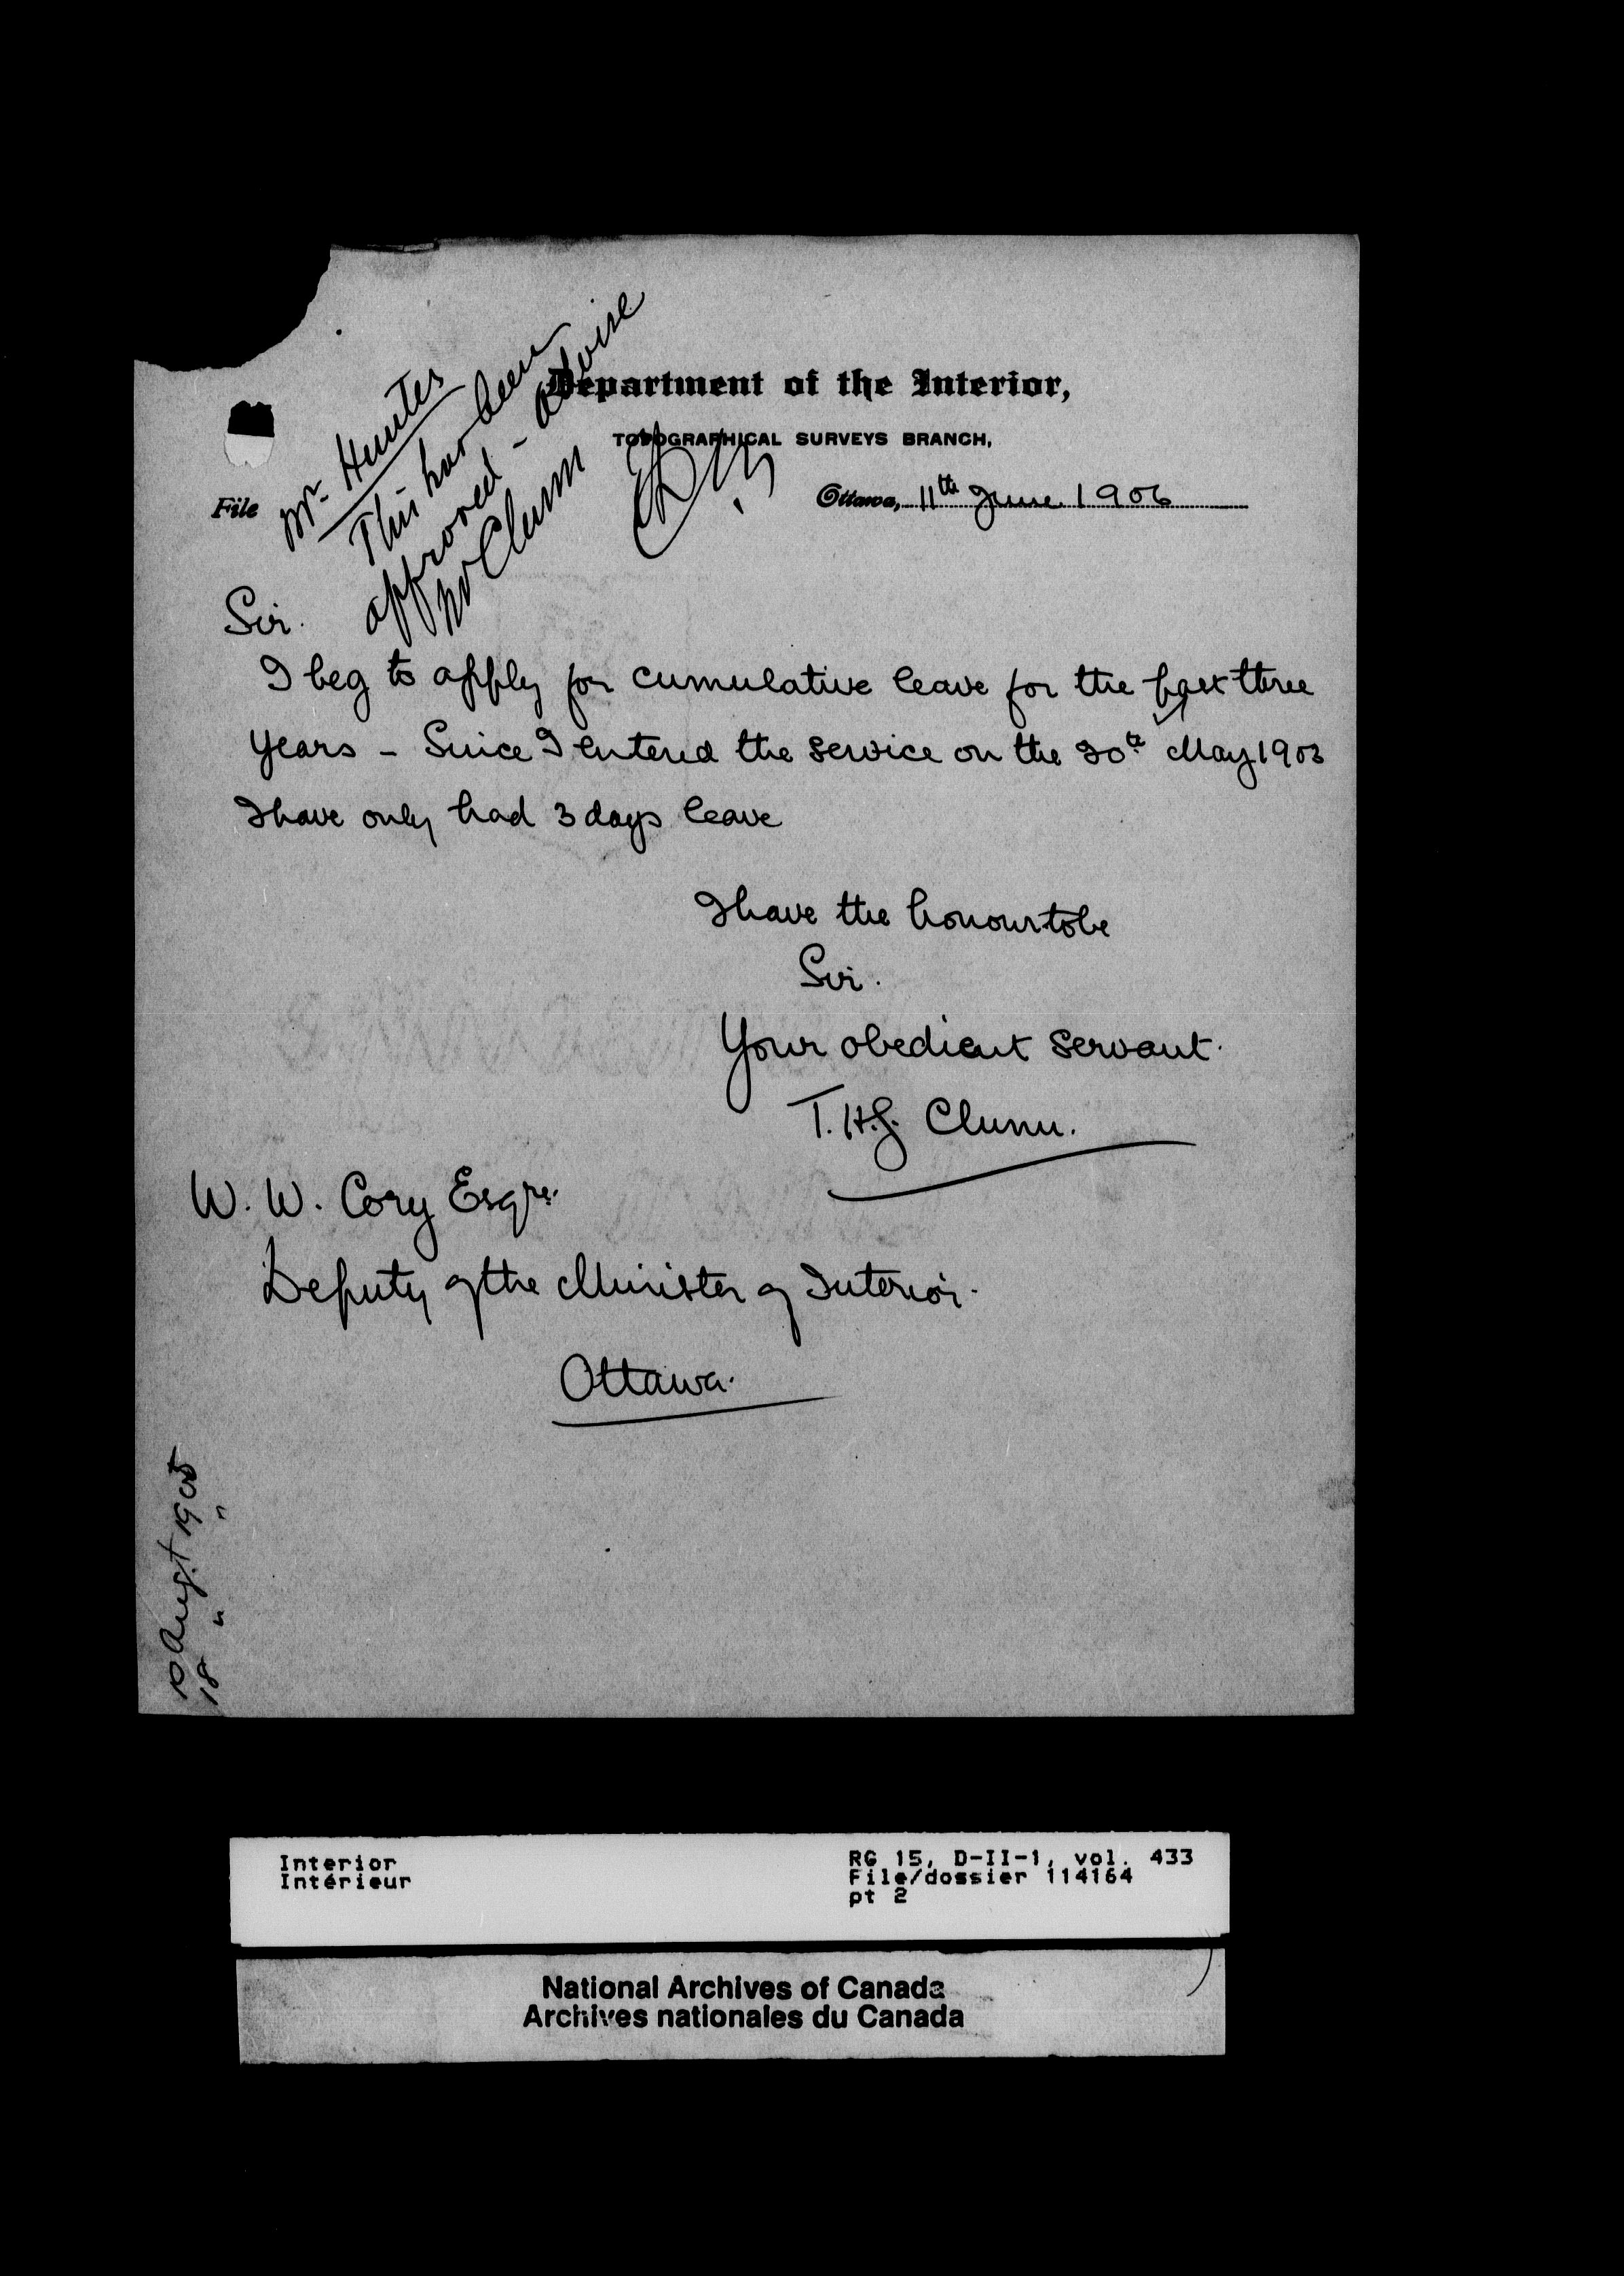 Mr. Hunter
This has been
approved - advise
Mr Clunn
Department of the Interior,
TOPOGRAPHICAL SURVEYS BRANCH,
File
Ottawa, 11th June 1906
Sir.
I beg to apply for cumulative leave for the past three
years - Since I entered the service on the 20th May 1903
I have only had 3 days leave
I have the honour to be
Sir.
Your obedient servant.
T.H.G. Clunn.
W. W. Cory Esqre.
Deputy of the Minister of Interior.
Ottawa.
10 Augt 1905
18 " "
Interior
Intérieur
RG 15, D-II-1, vol. 433
File/dossier 114164
pt 2
National Archives of Canada
Archives nationales du Canada